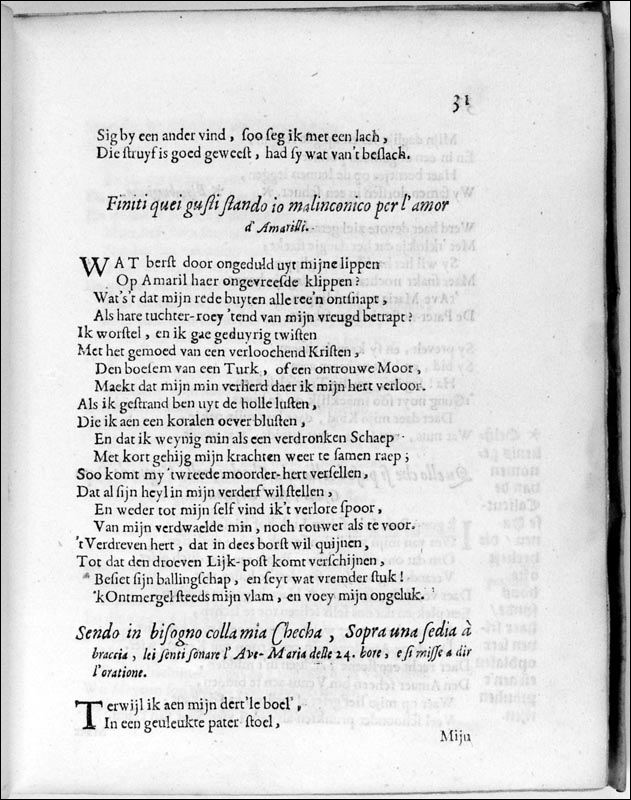 31
Sig by een ander vind, soo seg ik met een lach,
Die struyf is goed geweest, had sy wat van't beslack.
Finiti quei gusti stando io malinconico per l'amor
d'Amarilli.
WAT berst door ongeduld uyt mijne lippen
Op Amaril haer ongevreesde klippen?
Wat's't dat mijn rede buyten alle ree'n ontsnapt,
Als hare tuchter-roey 'tend van mijn vreugd betrapt?
Ik worstel, en ik gae geduyrig twisten
Met het gemoed van een verloochend Kristen,
Den boesem van een Turk, of een ontrouwe Moor,
Maekt dat mijn min verherd daer ik mijn hert verloor.
Als ik gestrand ben uyt de holle lusten,
Die ik aen een koralen oever blusten,
En dat ik weynig min als een verdronken Schaep
Met kort gehijg mijn krachten weer te samen raep;
Soo komt my 'tweede moorder-hert versellen,
Dat al sijn heyl in mijn verderf wil stellen,
En weder tot mijn self vind ik't verlore spoor,
Van mijn verdwaelde min, noch rouwer als te voor.
't Verdreven hert, dat in dees borst wil quijnen,
Tot dat den droeven Lijk-post komt verschijnen,
Besiet sijn ballingschap, en seyt wat vremder stuk!
'k Ontmergel steeds mijn vlam, en voey mijn ongeluk.
Sendo in bisogno colla mia Checha, Sopra una sedia à
braccia, lei senti sonare l'Ave-Maria delle 24. hore, e si misse a dir
l'oratione.
Terwijl ik aen mijn dert'le boel',
In een geuleukte pater stoel,
Mijn